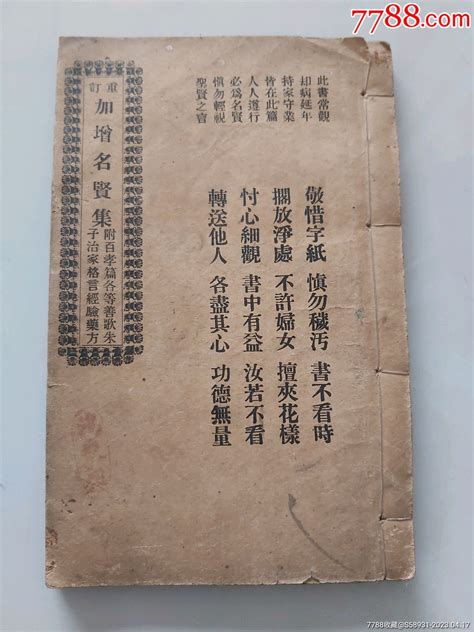 7788.com
此書常觀
却病延年
持家守業
皆在此篇
人人遵行
必爲名賢
慎勿輕視
聖賢之言
敬惜字紙 慎勿穢污 書不看時
擱放淨處 不許婦女 擅夾花樣
忖心細觀 書中有益 汝若不看
轉送他人 各盡其心 功德無量
重訂
加增名賢集
附百孝篇各等善歌朱
子治家格言經驗藥方
7788收藏@S58931-2023.04.17